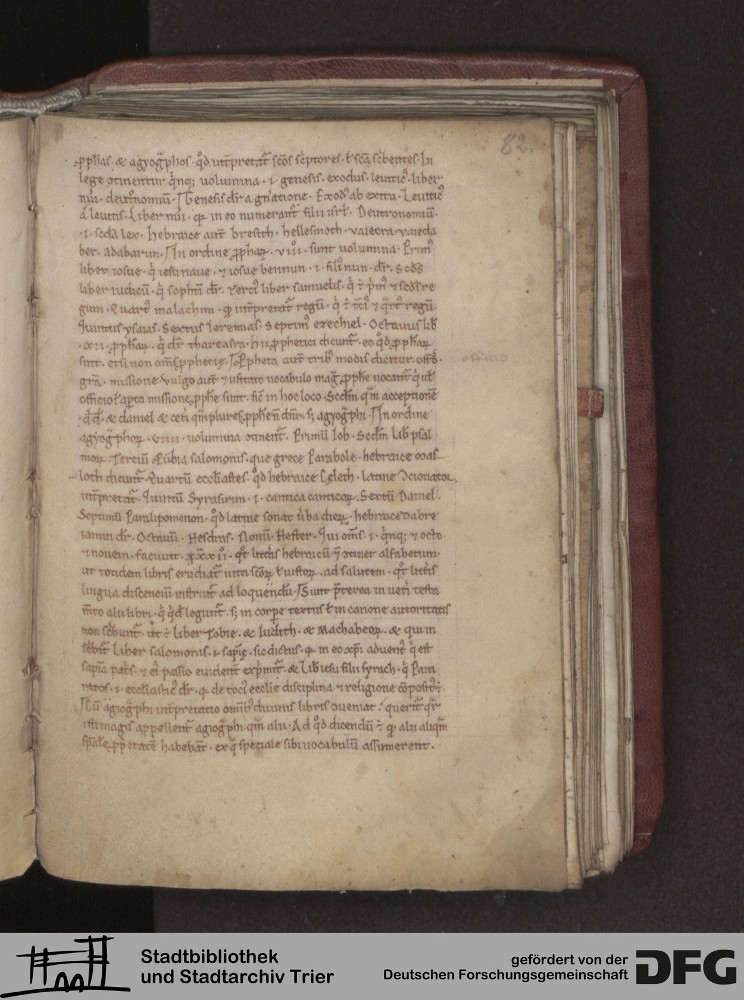 82.
ꝓph̄as. & agyog̃phos. qd̄ int̃pretat̃ sc̄os sc̃ptores. ł sc̄a sc̃bentes. In
lege ↄtinentur q̃nq; uolumina. ⁊ genesis. exodus. leuitic⁹. liber
nūi. deut̃onomiū. Genesis dr̃ a gn̄atione. Exod⁹ ab exitu. Leuitic⁹
a leuitis. Liber nūi. qꝫ in eo numerant̃ filii isrł. Deutronomiū.
.i. sc̄da lex. hebraice aut̄ bresith. hellesmoth. vaiecra. vaieda
ber. adabarim. In ordine ꝓph̄aꝝ. viii. sunt uolumina. Prim⁹
liber iosue. q̇ iesu naue. ⁊ iosue bennun. .i. fili⁹ nun. dr̃. Sc̄ds
liber iudicū. q̇ sophtī dr̃. Terci⁹ liber samuelis. q̇ ÷ p̃m⁹ ⁊ sc̄ds re
gum. Quart⁹ malachim. qđ int̃pretat̃ regū. q̇ ÷ t̃ci⁹ ⁊ q̃rt⁹ regū.
Quintus ysaias. Sextus Ieremias. Septim⁹ ezechiel. Octauus lib̃
.xii. ꝓph̄aꝝ. q̇ dr̃ thareasra. Hii ꝓphetici dicunt̃. eo qd̄ ꝓph̄aꝝ
sint. etsi non om̄s ꝓphecię. Ꝓpheta aut̄ trib⁹ modis dicitur. offō.
gr̄a. missione. Vulgo aut̄ ⁊ usitato vocabulo mag̃ ꝓphe uocant̃ q̇ uł
officio
officio ł aꝑta missione ꝓphe sunt. sic̄ in hoc loco. Scd̄m qm̄ acceptionē
& daniel & cet̃i qm̄plures ꝓph̄e n̄ dn̄r. s; agyog̃phi. In ordine
agyog̃phoꝝ. viiii. volumina ↄtinent̃. Primū Iob. Scd̄m lib̃ psal
moꝝ. Terciū salomonis. que grece Parabole. hebraice mas
loth dicunt̃. Quartū eccl̄iastes. qd̄ hebraice Celeth. latine ↄcionator
int̃pretat̃. Quintū Syrasirim. .i. cantica canticoꝝ. Sextū Daniel.
Septimū Paralipomenon. qd̄ latine sonat ũba dieꝝ. hebraice dabre
iamin dr̃. Octauū. Hesdras. Nonū. Hester. Qui om̄s. .i. q̃nq; ⁊ octo
⁊ nouem. faciunt. xxii. qt̃ litt̃is hebraicū ↄtinet alfabetum.
ut totidem libris erudiat̃ uita ad salutem. qt̃ litt̃is
lingua discenciū instruit̃ ad loquendū. Sunt p̃terea in vet̃i testa
m̄to alii libri. q̇ q̇dē legunt̃. s; in corpe textus ł in canone autoritatis
non sc̃bunt̃. ut ÷ liber Tobie. & Iudith. & Machabeoꝝ. & qui in
sc̃bit̃ Liber salomonis. .i. sapię. sic dictus. qꝫ in eo xp̄i aduent⁹ q̇ est
sapīa pat̃s. ⁊ ei⁹ passio euident̃ exp̃mit̃. & Lib̃ iesu filii syrach. q̇ Pana
retos. .i. eccl̄iastic⁹ dr̃. qꝫ de toci⁹ ecclie disciplina ⁊ religione ↄposit⁹ ÷.
Cū agiog̃phi int̃pretatio om̄ib⁹ diuinis libris ↄueniat. querit̃ qr̃
isti magis appellent̃ agiog̃phi qm̄ alii. Ad qd̄ dicendū ÷ qꝫ alii aliqm̄
sp̄alē ꝓp̃etatē habebāt. ex q̇ speciale sibi uocabulū assumerent.
Stadtbibliothek
und Stadtarchiv Trier
gefördert von der
Deutschen Forschungsgemeinschaft
DFG